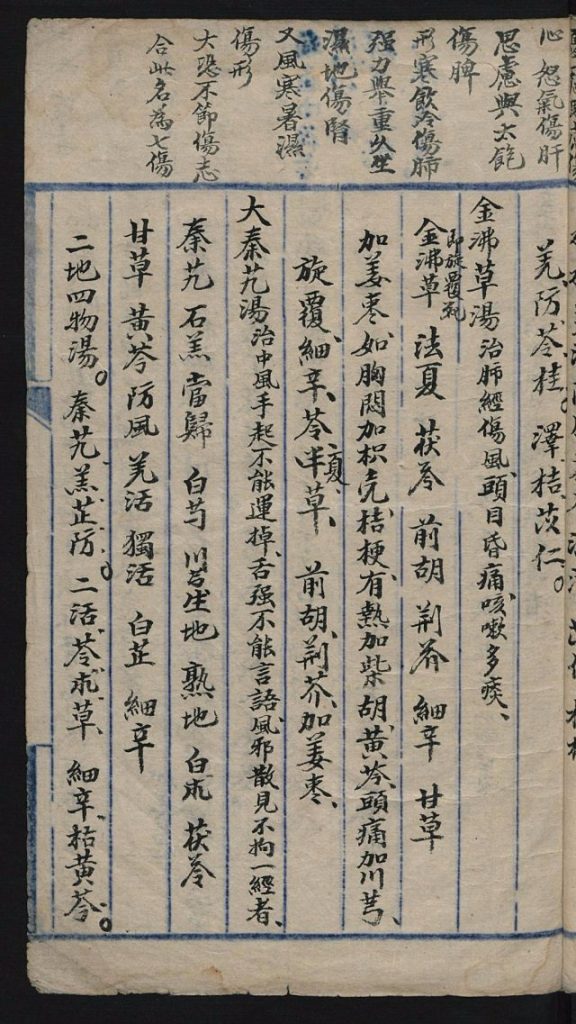 心恕氣傷肝
思慮與太飽
傷脾
形寒飲冷傷肺
强力舉重久坐
濕地傷腎
又風寒暑濕
傷形
大恐不節傷志
合此名為七傷
羌防苓桂。澤桔茨仁。
金沸草湯治肺經傷風、頭目昏痛、咳嗽多痰、
金沸草即旋覆花 法夏 茯苓 前胡 荆芥 細辛 甘草
加姜枣、如胸悶加枳壳、桔梗、有熱加柴胡、黄芩、頭痛加川芎、
旋覆、細辛、苓半夏草、 前胡、荆芥、加姜枣、
大秦艽湯治中風手起不能運掉、舌强不能言語、風邪散見不拘一經者、
秦艽 石羔 當歸 白芍 川芎 生地 熟地 白朮 茯苓
甘草 黄芩 防風 羌活 獨活 白芷 細辛
二地四物湯。秦艽羔芷防。二活、苓朮草、細辛枯黄芩。